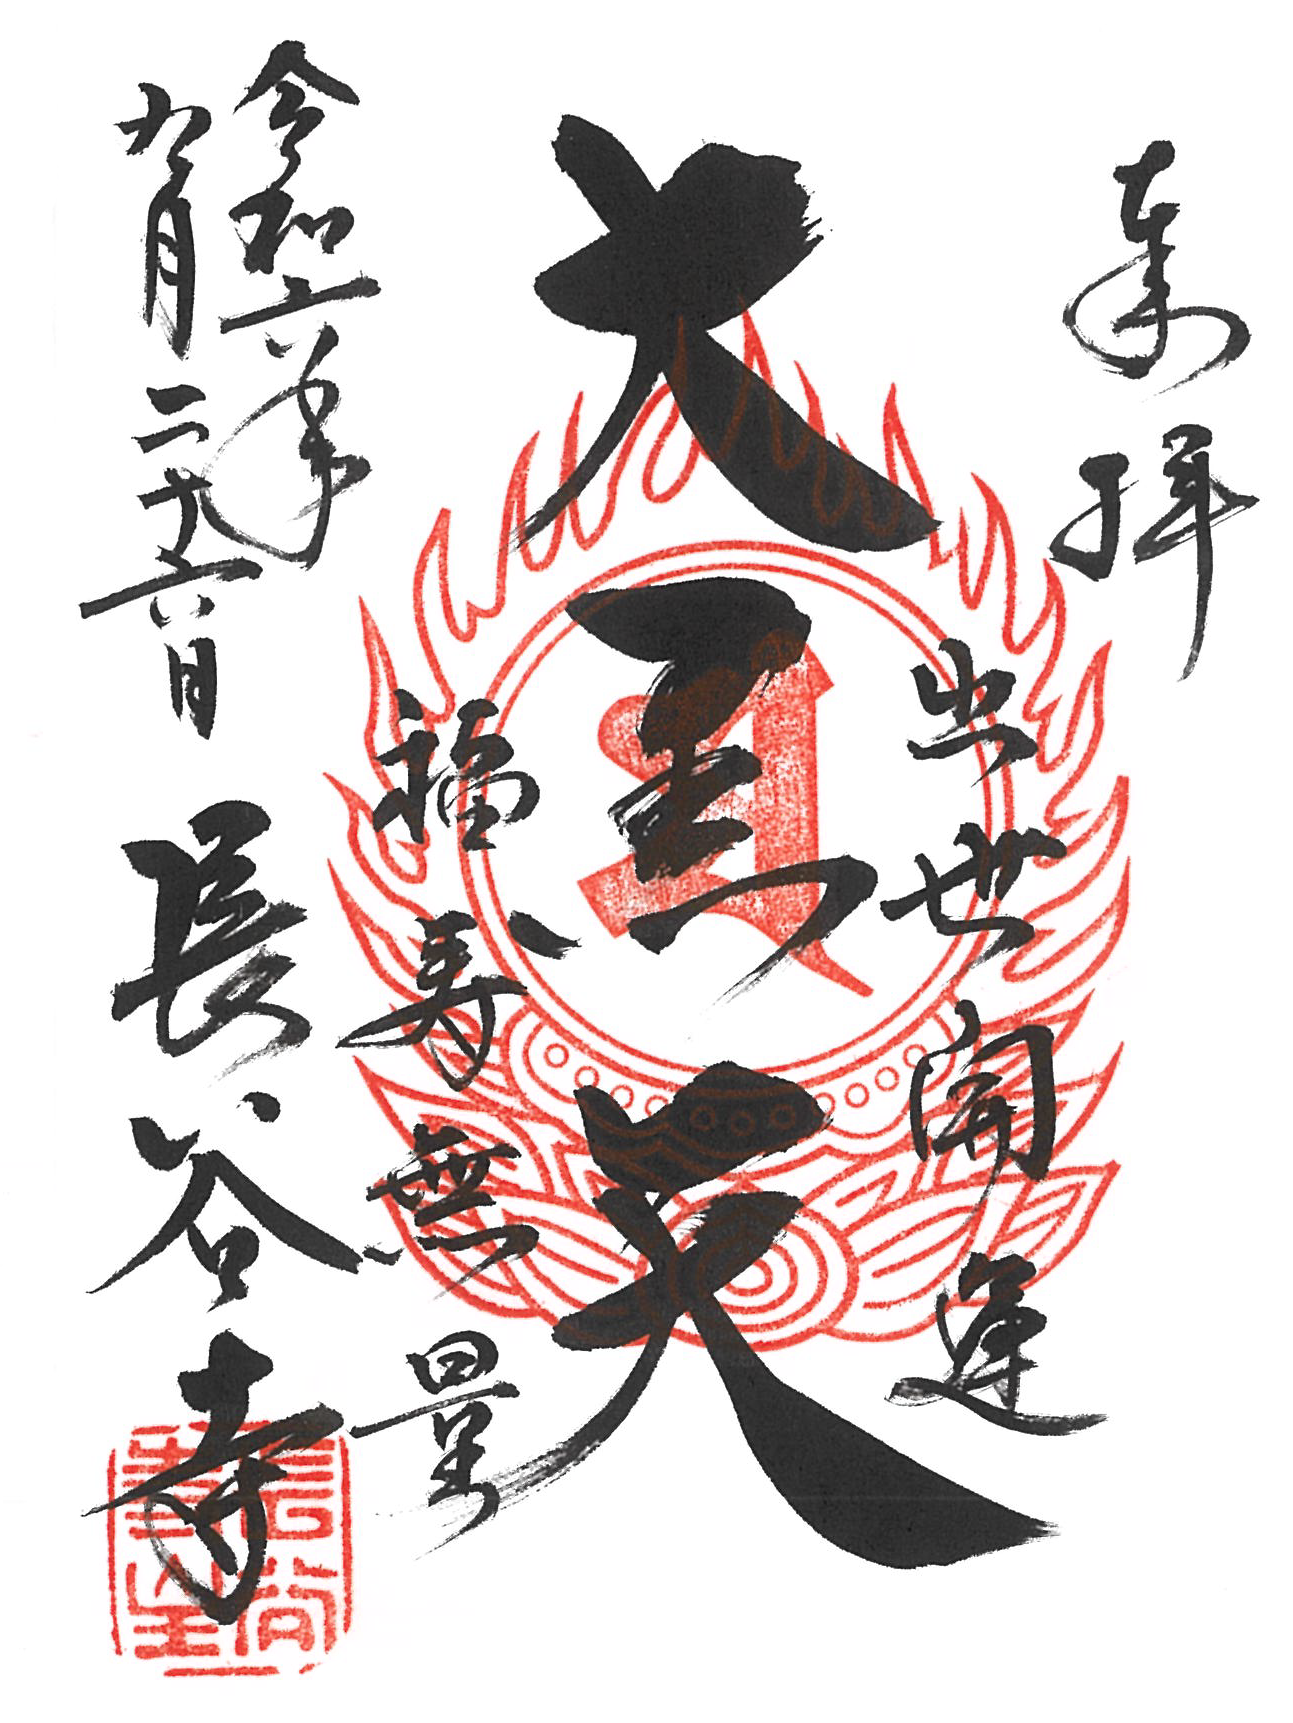 奉拝
出世開運
大黒天
福寿無量
令和六年
九月二十六日
長谷寺